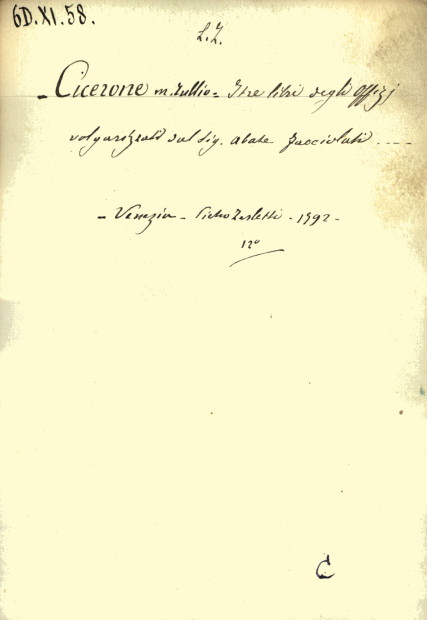 6D.XI.58.
L.Z.
- Cicerone M. Tullio = I tre libri degli offizj
volgarizzati dal Sig. Abate Facciolati ....
- Venezia - Pietro Zerletti - 1792 -
12°
C